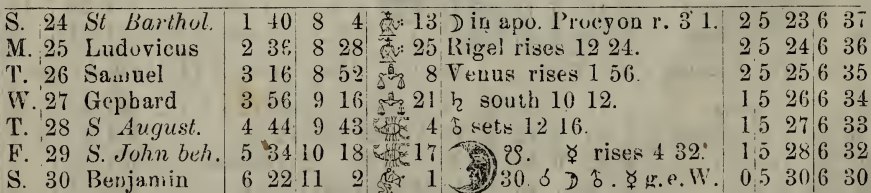 S. 24 St Barthol. 1 40 8 4 13 ☽ in apo. Procyon r. 3 1. 2 5 23 6 37
M. 25 Ludovicus 2 36 8 28 25 Rigel rises 12 24. 2 5 24 6 36
T. 26 Samuel 3 16 8 52 8 Venus rises 1 56. 2 5 25 6 35
W. 27 Gephard 3 56 9 16 21 ♄ south 10 12. 1 5 26 6 34
T. 28 S August. 4 44 9 43 4 sets 12 16. 1 5 27 6 33
F. 29 S. John beh. 5 34 10 18 17 ☋. ☿ rises 4 32. 1 5 28 6 32
S. 30 Benjamin 6 22 11 2 1 30. ☌ ☽ ☿ g.e.W. 0 5 30 6 30